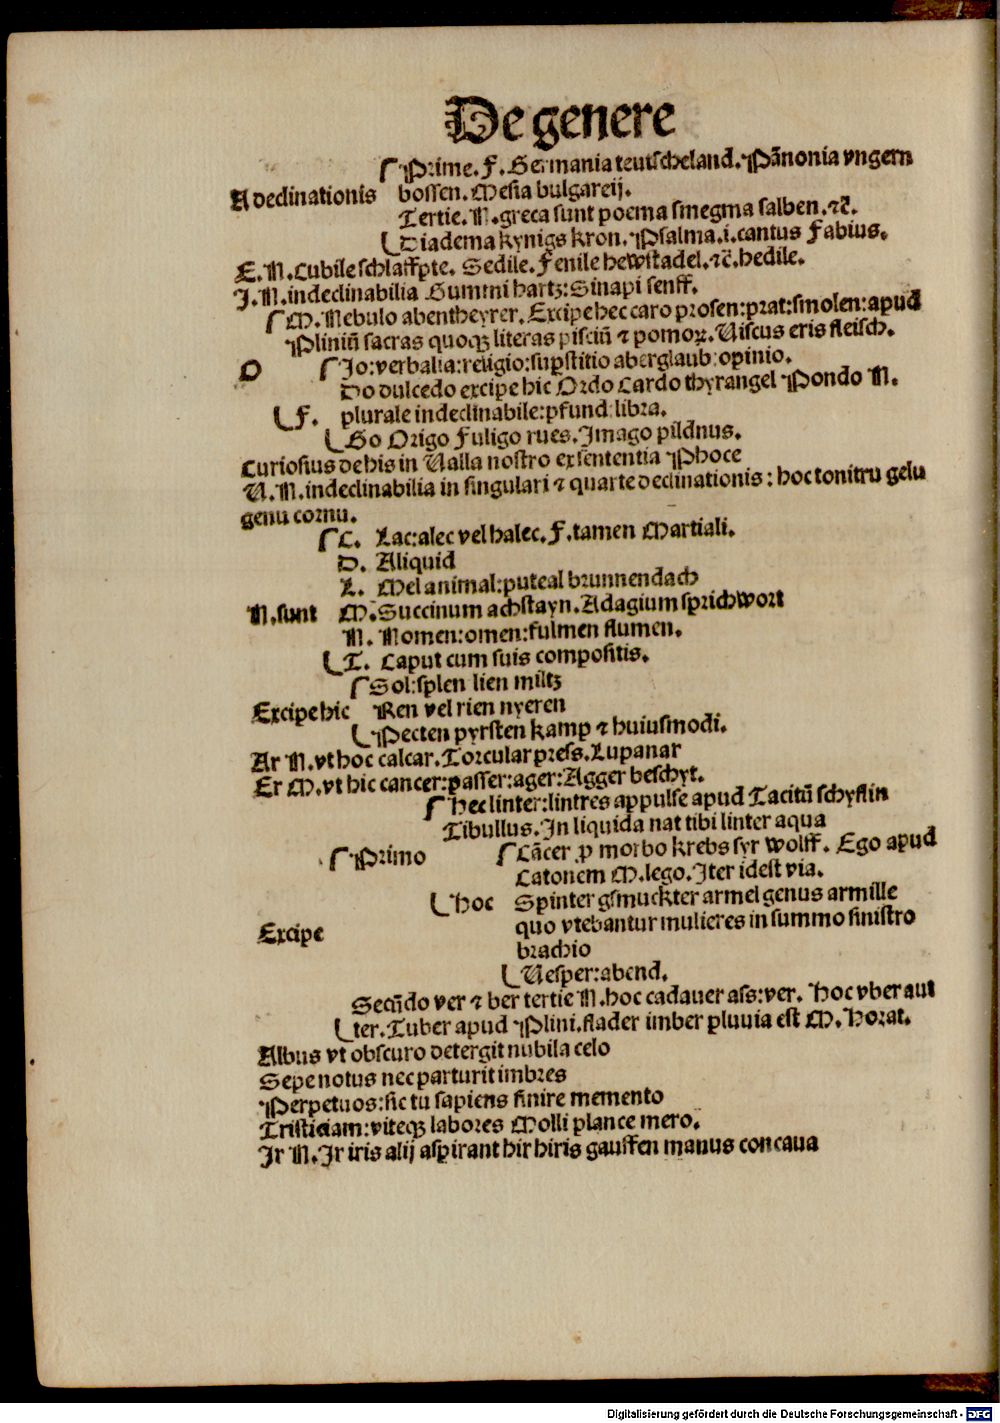 De genere
Prime. F. Germania teutscheland. Pãnonia vngern
A declinationis bossen. Mesia bulgareij.
Tertie. N. greca sunt poema smegma salben. ⁊c̃.
Diadema kynigs kron. Psalma .i. cantus Fabius.
E. N. Cubile schlaffpte. Sedile. Fenile hewstadel. ⁊c̃. hedile.
I. N. indeclinabilia Gummi hartz: Sinapi senff.
M. Nebulo abentheyrer. Excipe hec caro prosen: prat: smolen: apud
Pliniũ sacras quoqꝫ literas pisciũ ⁊ pomoꝝ. Viscus eris fleisch.
O Io: verbalia: religio: suꝑstitio aberglaub: opinio.
Do dulcedo excipe hic Ordo Cardo thyrangel Pondo N.
F. plurale indeclinabile: pfund: libra.
Go Origo Fuligo rues. Imago pildnus.
Curiosius de his in Valla nostro ex sententia Phoce
V. N. indeclinabilia in singulari ⁊ quarte declinationis: hoc tonitru gelu
genu cornu.
C. Lac: alec vel halec. F. tamen Martiali.
D. Aliquid
L. Mel animal: puteal brunnendach
N. sunt M. Succinum achstayn. Adagium sprichwort
N. Nomen: omen: fulmen flumen.
T. Caput cum suis compositis.
Sol: splen lien miltz
Excipe hic Ren vel rien nyeren
Pecten pyrsten kamp ⁊ huiusmodi.
Ar N. vt hoc calcar. Torcular press. Lupanar
Er M. vt hic cancer: passer: ager: Agger beschyt.
hec linter: lintres appulse apud Tacitũ schyflin
Tibullus. In liquida nat tibi linter aqua
Primo Cãcer ꝓ morbo krebs syr wolff. Ego apud
Catonem M. lego. Iter idest via.
hoc Spinter gsmuckter armel genus armille
quo vtebantur mulieres in summo sinistro
Excipe
brachio
Vesper: abend.
Secũdo ver ⁊ ber tertie N. hoc cadauer ass: ver. Hoc vber aut
ter. Tuber apud Plini. flader imber pluuia est M. Horat.
Albus vt obscuro detergit nubila celo
Sepe notus nec parturit imbres
Perpetuos: sic tu sapiens finire memento
Tristiciam: viteqꝫ labores Molli plance mero.
Ir N. Ir iris alij aspirant hir hiris gauffen manus concaua
Digitalisierung gefördert durch die Deutsche Forschungsgemeinschaft - DFG